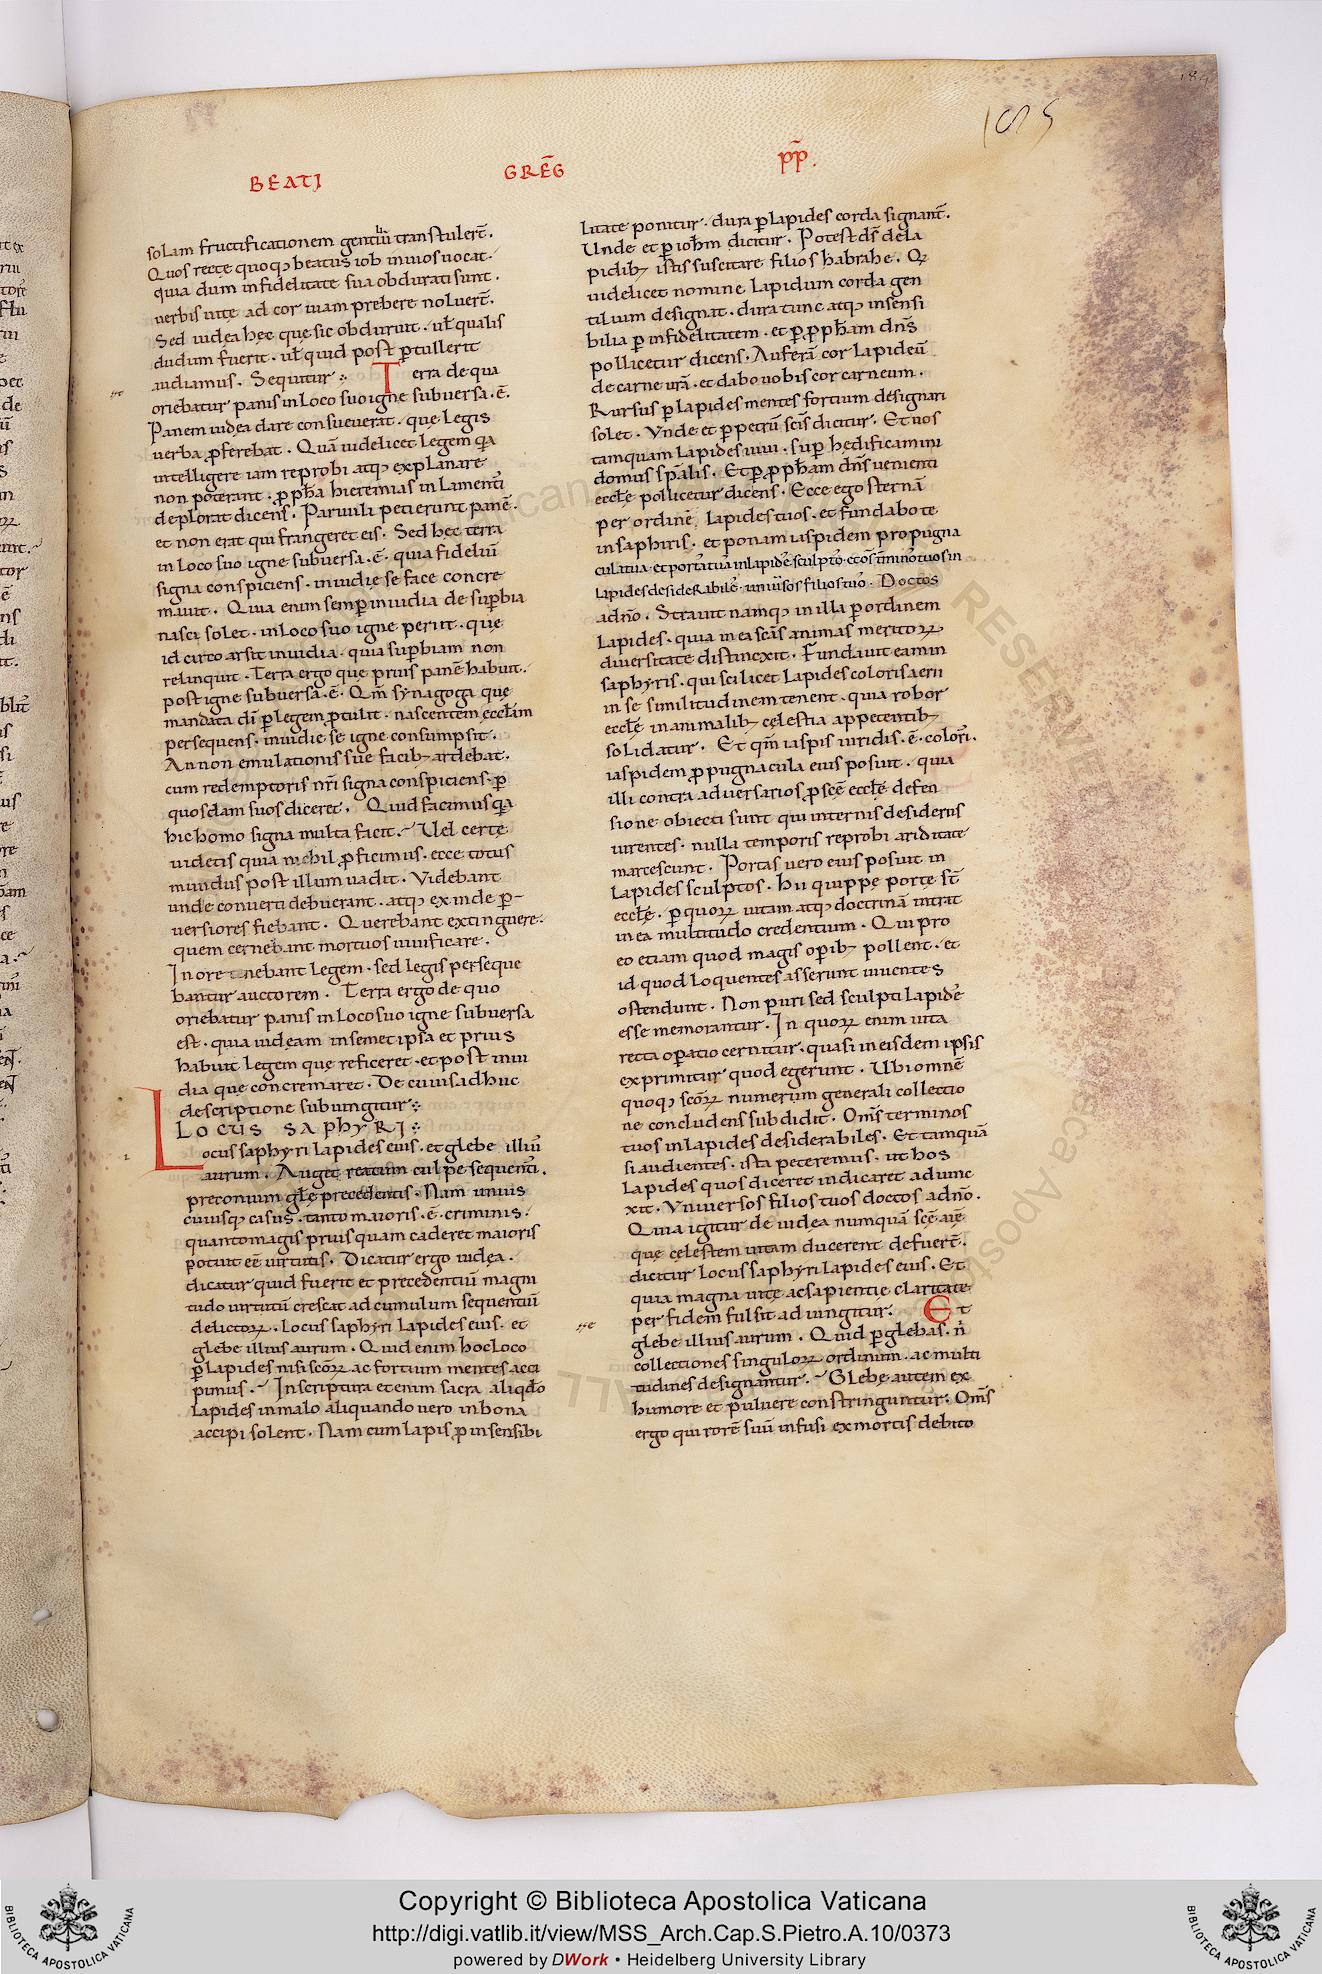 184
185
BEATI GREḠ pp̄.
solam fructificationem gentiū transtuler̄t.
Quos recte quoq; beatus iob inuios uocat.
quia dum infidelitate sua obdurati sunt.
uerbis uite ad cor uiam prebere noluer̄t.
Sed iudea hęc que sic obduruit. ul̄ qualis
dudum fuerit. ul̄ quid post p̱tullerit
audiamus. Sequitur. Terra de qua
oriebatur panis in loco suo igne subuersa. ē.
Panem iudea dare consueuerat. que legis
uerba p̱ferebat. Quā uidelicet legem q̄a
intelligere iam reprobi atq; explanare
non poterant. p̱ pph̄a hieremias in lamenti
deplorat dicens. Paruuli petierunt panē.
et non erat qui frangeret eis. Sed hęc terra
in loco suo igne subuersa. ē. quia fideliū
signa conspiciens. inuidię se face concre
mauit. Quia enim semp̱ inuidia de sup̱bia
nasci solet. in loco suo igne periit. quę
id circo arsit inuidia. quia sup̱biam non
relinquit. Terra ergo que prius panē habuit.
post igne subuersa. ē. Qm̄ synagoga quę
mandata dī p̱ legem p̱tulit. nascentem eccl̄am
persequens. inuidię se igne consumpsit.
An non emulationis sue facib; ardebat.
cum redemptoris nr̄i signa conspiciens. p̱
quosdam suos diceret. Quid facimus q̄a
hic homo signa multa facit. Uel certe
uidetis quia nichil p̱ficimus. ecce totus
mundus post illum uadit. Videbant
unde conuerti debuerant. atq; exinde p̱-
uersiores fiebant. Querebant extinguere.
quem cernebant mortuos uiuificare.
In ore tenebant legem. sed legis perseque
bantur auctorem. Terra ergo de quo
oriebatur panis in loco suo igne subuersa
est. quia iudęam in semet ipsa et prius
habuit legem que reficeret. et post inui
dia que concremaret. De cuius adhuc
descriptione subiungitur
LOCUS SAPHYRI
Locus saphyri lapides eius. et glebe illiū
aurum. Auget reatum culpe sequenti.
preconium gl̄ę precedentis. Nam unius
cuiusq; casus. tanto maioris. ē. criminis.
quanto magis prius quam caderet maioris
potuit eē uirtutis. Dicatur ergo iudęa.
dicatur quid fuerit et precedentiū magni
tudo uirtutū crescat ad cumulum sequentiū
delictoꝝ. Locus saphyri lapides eius. et
glebe illius aurum. Quid enim hoc loco
p̱ lapides nisi sc̄oꝝ ac fortium mentes acci
pimus. In scriptura etenim sacra aliqdo
lapides in malo aliquando uero in bona
accipi solent. Nam cum lapis p̱ insensibi
litate ponitur. dura p̱ lapides corda signant̄.
Unde et p̱ ioh̄m dicitur. Potest dś de la
pidib; istis suscitare filios habrahe. Q
uidelicet nomine lapidum corda gen
tilium designat. dura tunc atq; insensi
bilia p̱ infidelitatem. et p̱ pph̄am dn̄s
pollicetur dicens. Auferā cor lapideū
de carne ur̄a. et dabo uobis cor carneum.
Rursus p̱ lapides mentes fortium designari
solet. Vnde et p̱ petrū scīs dicitur. Et uos
tamquam lapides uiui. sup̱ hędificamini
domus sp̄alis. Et p̱ pph̄am dn̄s uenienti
eccl̄ę pollicetur dicens. Ecce ego sternā
per ordinē lapides tuos. et fundabo te
in saphiris. et ponam iaspidem propugna
cula tua. et portas tuas in lapides sculptos. et om̄s t̄minos tuos in
lapides desiderabiles. uniuersos filios tuos. Doctos
a dn̄o. Strauit namq; in illa p̱ ordinem
lapides. quia in ea scās animas meritoꝝ
diuersitate distinexit. Fundauit eam in
saphyris. qui scilicet lapides coloris aerii
in se similitudinem tenent. quia robor
eccl̄ę in animalib; cęlestia appetentib;
solidatur. Et qm̄ iaspis uiridis. ē. colori.
iaspidem p̱pugnacula eius posuit. quia
illi contra aduersarios p̱ scē eccl̄ę defen
sione obiecti sunt qui internis desideriis
uirentes. nulla temporis reprobi ariditate
marcescunt. Portas uero eius posuit in
lapides sculptos. Hii quippe porte st̄
eccl̄ę. p̱ quoꝝ uitam atq; doctrinā intrat
in ea multitudo credentium. Qui pro
eo etiam quod magis op̱ib; pollent. et
id quod loquentes asserunt uiuentes
ostendunt. Non puri sed sculpti lapides
esse memorantur. In quoꝝ enim uita
recta op̱atio cernitur. quasi in eisdem ipsis
exprimitur quod egerunt. Ubi omnē
quoq; scōꝝ numerum generali collectio
ne concludens subdidit. Om̄s terminos
tuos in lapides desiderabiles. Et tamquā
si audientes. ista peteremus. ut hos
lapides quos diceret indicaret adiunc
xit. Vniuersos filios tuos doctos a dn̄o.
Quia igitur de iudea numquā scē aīę
quę cęlestem uitam ducerent defuer̄t.
dicitur locus saphyri lapides eius. Et
quia magna uitę ac sapientię claritate
per fidem fulsit adiungitur. Et
glebe illius aurum. Quid p̱ glebas. n̄
collectiones singuloꝝ ordinum. ac multi
tudines designantur. Glebę autem ex
humore et puluere constringuntur. Om̄s
ergo qui rorē suū infusi ex mortis debito
Copyright © Biblioteca Apostolica Vaticana
http://digi.vatlib.it/view/MSS_Arch.Cap.S.Pietro.A.10/0373
powered by DWork • Heidelberg University Library
BIBLIOTECA APOSTOLICA VATICANA
BIBLIOTECA APOSTOLICA VATICANA